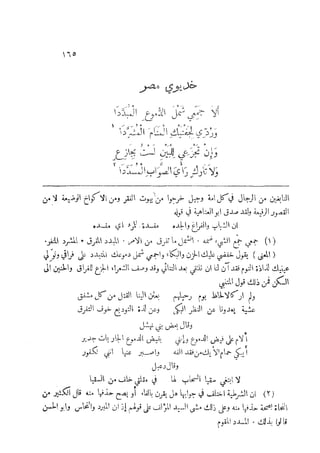 ١٦٥
خديوي مصر
أَلَا جَمِّعِي شَمْلَ الدُّمُوعِ الْمُبَدَّدَا
وَرُدِّي لِجَفْنَيْكِ الْمَنَامَ الْمُشَرَّدَا ١
وَإِنْ تَجْزَعِي لِلْبَيْنِ لَسْتُ بِجَازِعٍ
وَلَا تَارِكٍ رَأْيَ الصَّوَابِ الْمُسَدَّدَا ٢
النابغين من الرجال في كل امة وجيل خرجوا من بيوت الفقر ومن الاكواخ الوضيعة لا من
القصور الرفيعة ولقد صدق ابو العتاهية في قوله
ان الشباب والفراغ والجده مفسدة للمرء اي مفسده
(١) جمعي جمع الشيء ضمه . الشمل ما تفرق من الامر . المبدد المفرق . المشرد المنفور .
(المعنى) يقول خفضي عليك الحزن والبكاء واجمعي شمل دموعك المتبدد على فراقي وأولي
عينيك لذاذة النوم فقد آن لنا ان نلتقي بعد التنائي وقد وصف الشعراء الجزع للفراق والحنين الى
السكن فمن ذلك قول المتنبي
ولم ار كالالحاظ يوم رحيلهم بعثن الينا القتل من كل مشفق
عشية يعدونا عن النظر البكى وعن لذة التوديع خوف التفرق
وقال بعض بني نهشل
ألام على فيض الدموع وإنني بفيض الدموع الجاريات جدير
أيبكي حمام الأيك من فقد الفه واصبر عنها انني لكفور
وقال دعبل
لا ابتغي سقيا السحاب لها في مقلتي خلف من السقيا
(٢) ان الشرطية اختلف في جوابها هل يقرن بالفاء أو يصح حذفها منه قال الكثير من
النحاة بصحة حذفها منه وعلى ذلك مشى السيد المؤلف على قولهم إذ ان المبرد والنحاس وابو الحسن
قالوا بذلك . المسدد المقوم